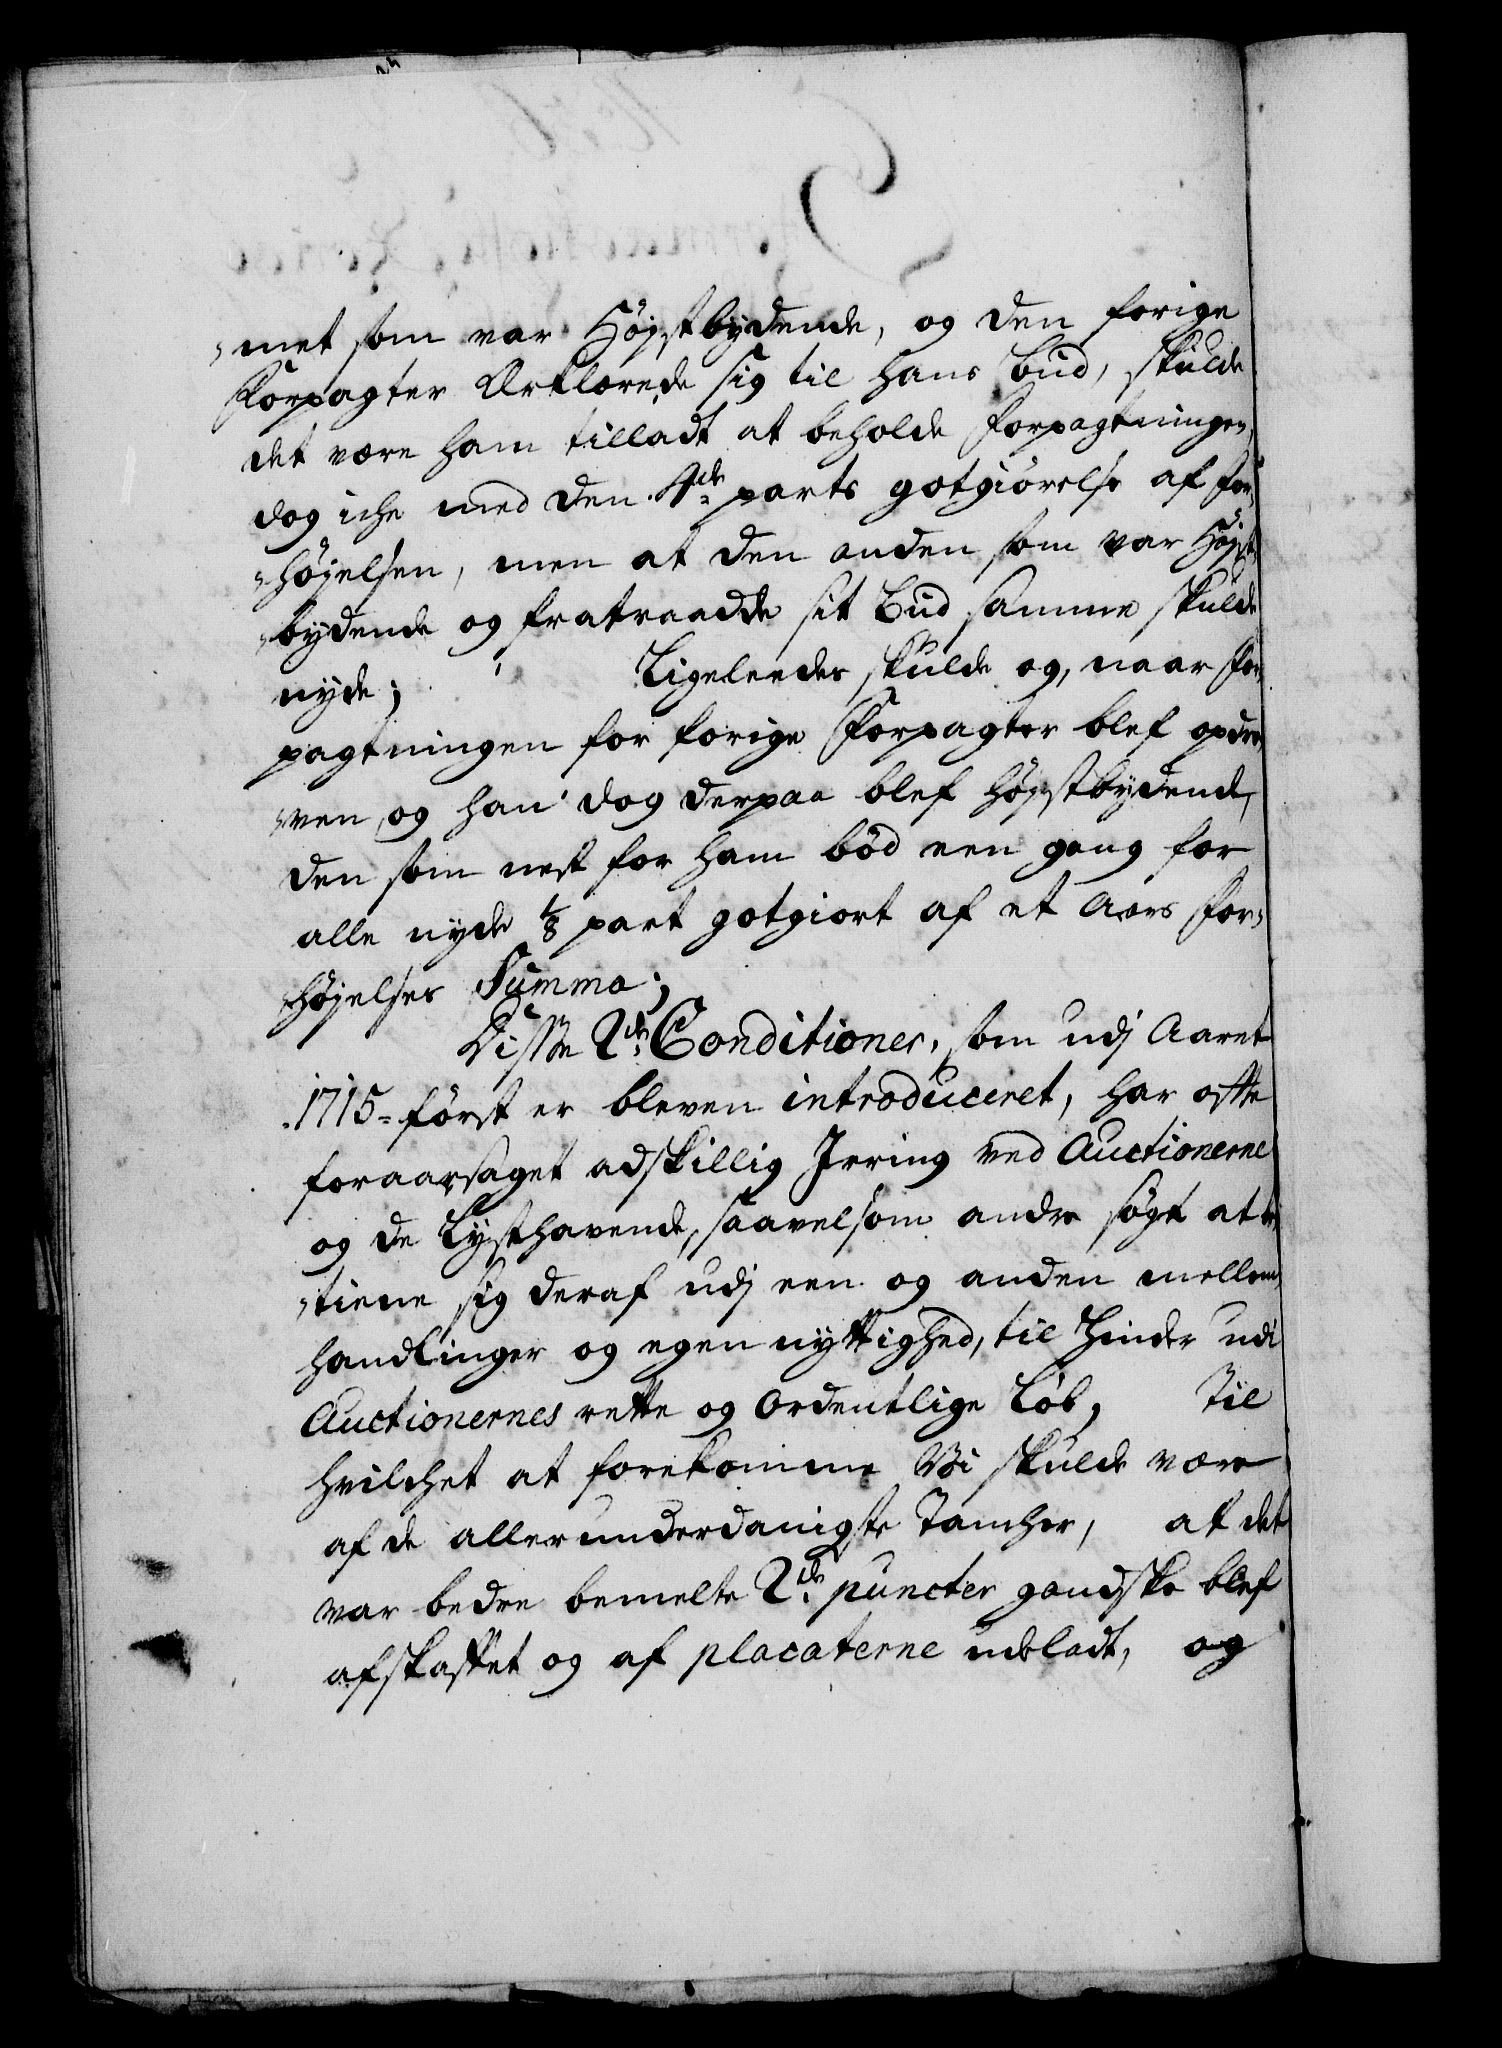 -met som var Høystbydende, og den forige
Forpagter Erklærede sig til hans bud, skulde
det være ham tilladt at beholde forpagtningen,
dog iche med den 4de parts gotgiørelse af for-
-højelsen, men at den anden som var Højst-
-bydende og fratraadde sit bud samme skulde
nyde; Ligeleedes skulde og, naar for-
pagtningen for forige Forpagter blef opdre-
-ven, og han dog derpaa blef højstbydende,
den som nest for ham bød een gang for
alle nyde 1/8 part gotgiort af et Aars for-
højelses Summa;
Disse 2de Conditioner, som udj Aaret
1715 først er bleven introduceret, har ofte
foraarsaget adskillig Irring ved Auctionerne
og de Lysthavende, saavelsom andre søgt at be-
-tiene sig deraf udj een og anden mellem-
handlinger og egennyttighed, til Hinder udi
Auctionernes rette og ordentlige Løb, Til
hvilchet at forekomme Vi skulde være
af de allerunderdanigste Tancher, at det
var bedre bemelte 2de puncter gandske blef
afskaffet og af placaterne udeladt, og